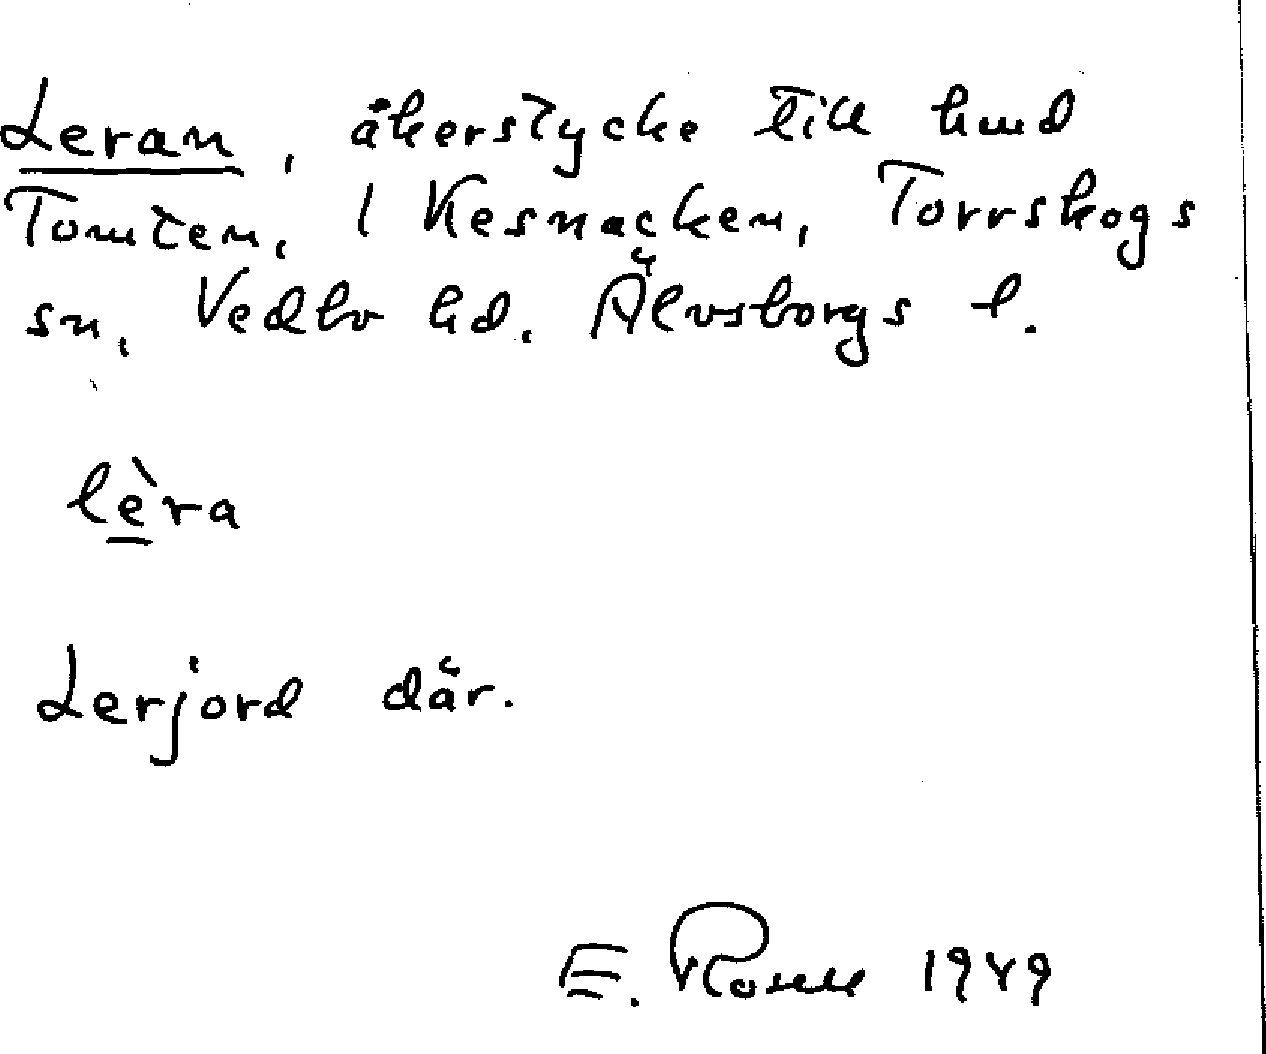 Leran, åkerstycke till hmd
Tomten, 1 Kesnacken, Torrskogs
sn, Vedbo hd. Älvsborgs l.
lèra
Lerjord där.
E. 1949